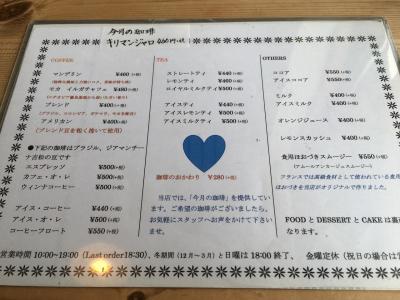 今月の珈琲
キリマンジャロ 460円+税
COFFEE
マンデリン ¥460(+税)
モカ イルガチェフ ¥480(+税)
ブレンド ¥400(+税)
アメリカン ¥400(+税)
(ブレンド豆を粗く挽いて使用)
●下記の珈琲はブラジル、ジアマンチーナ古松の豆です
エスプレッソ ¥500(+税)
カフェ・オ・レ ¥500(+税)
ウィンナコーヒー ¥500(+税)
アイス・コーヒー ¥440(+税)
アイス・オ・レ ¥500(+税)
コーヒーフロート ¥550(+税)
TEA
ストレートティ ¥440(+税)
レモンティ ¥460(+税)
ロイヤルミルクティ ¥500(+税)
アイスティ ¥440(+税)
アイスレモンティ ¥500(+税)
アイスミルクティ ¥500(+税)
珈琲のおかわり ¥280(+税)
当店では、「今月の珈琲」を提供しています。ご希望の珈琲がございましたら、お気軽にスタッフへお声をかけて下さいませ。
OTHERS
ココア ¥550(+税)
アイスココア ¥550(+税)
ミルク ¥400(+税)
アイスミルク ¥400(+税)
オレンジジュース ¥400(+税)
レモンスカッシュ ¥400(+税)
食用ほおづきスムージー ¥550(+税)
(アムールアンカージュスムージー)
フランスでは高級食材として使われている食用ほおづきを当店がオリジナルで作りました。
FOOD と DESSERT と CAKE は裏
になります。
営業時間 10:00~19:00(Last order18:30)、冬期間(12月~3月)と日曜は18:00 終了、 金曜定休(祝日の場合は営